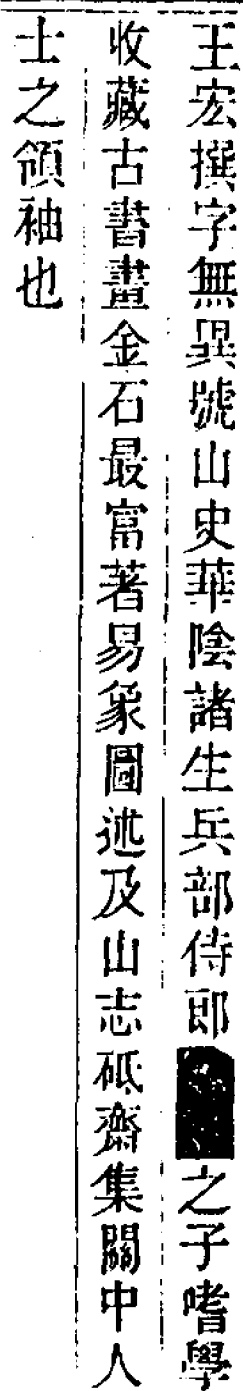 王宏撰字無異號山史華陰諸生兵部侍郎之子嗜學
收藏古書畫金石最富著易象圖述及山志砥齋集關中人
士之領袖也